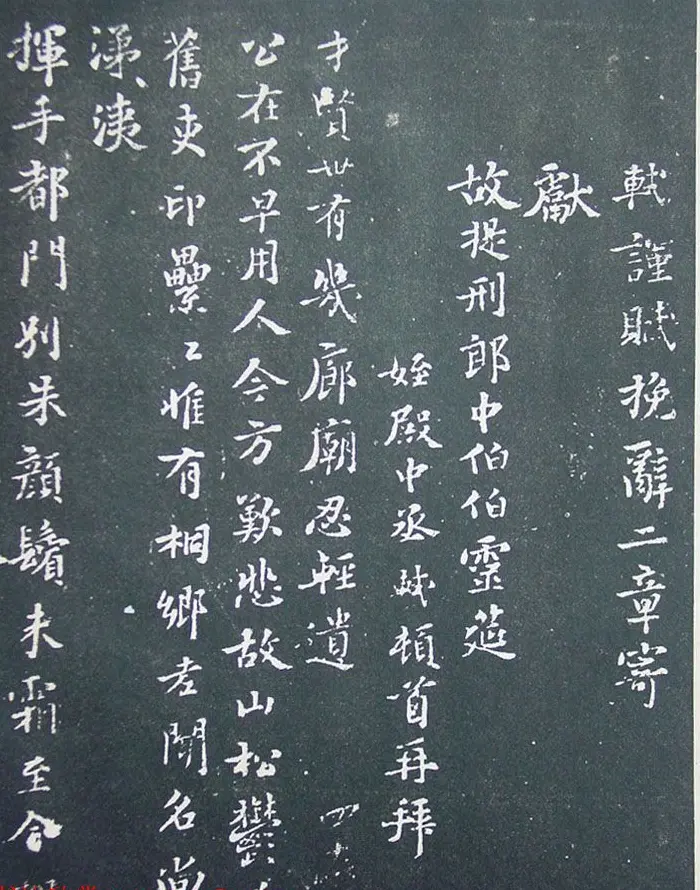 軾謹賦挽辭二章寄
獻
故提刑郎中伯伯靈筵
姪殿中丞軾頓首再拜
才賢世有幾廊廟忍輕遺
公在不早用人今方歎悲故山松鬱
舊吏印纍〻惟有桐鄉老聞名尚
涕洟
揮手都門別朱顏鬢未霜至今